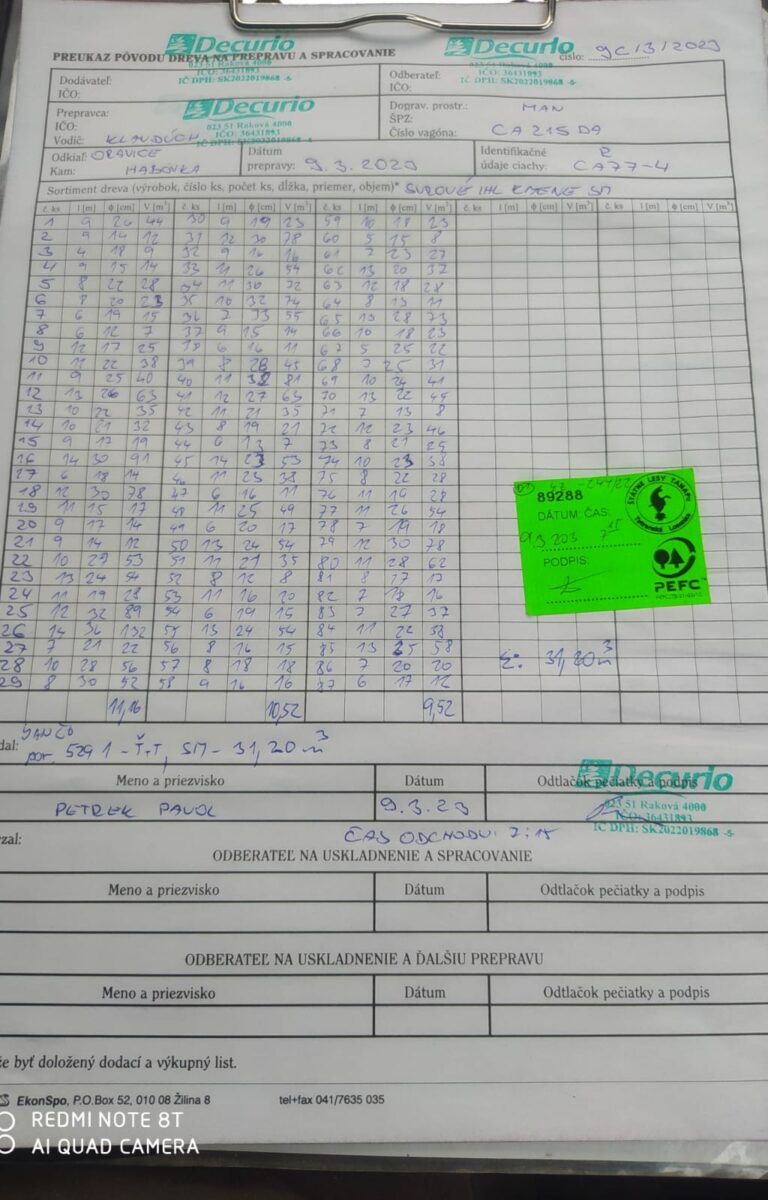 Decurio
Decurio
PREUKAZ PÔVODU DREVA NA PREPRAVU A SPRACOVANIE
číslo: 9C/3/2023
023 51 Raková 4000
IČO: 36431893
IČ DPH: SK2022019868 -6-
023 51 Raková 4000
IČO: 36431893
IČ DPH: SK2022019868 -6-
Dodávateľ:
IČO:
Odberateľ:
IČO:
Decurio
023 51 Raková 4000
IČO: 36431893
Prepravca:
IČO:
Vodič: KLANDÚCH
Doprav. prostr.: MAN
ŠPZ:
Číslo vagóna: CA 215 DA
Odkiaľ: ORAVICE
Kam: HABOVKA
Dátum
prepravy: 9.3.2023
Identifikačné
údaje ciachy: CA77-4
Sortiment dreva (výrobok, číslo ks, počet ks, dĺžka, priemer, objem)* SUROVÉ IHL KMENE SM
č. ks l [m] ϕ [cm] V [m³] č. ks l [m] ϕ [cm] V [m³] č. ks l [m] ϕ [cm] V [m³] č. ks l [m] ϕ [cm] V [m³] č. ks l [m] ϕ [cm] V [m³]
1 9 26 44 30 9 19 23 59 10 18 23
2 9 14 12 31 12 30 78 60 5 15 8
3 4 18 9 32 9 16 16 61 7 23 27
4 9 15 14 33 11 26 54 62 13 20 37
5 8 22 28 34 11 30 72 63 12 18 28
6 8 20 23 35 10 32 74 64 8 13 11
7 6 19 15 36 7 33 55 65 13 28 73
8 6 12 7 37 9 15 14 66 10 18 23
9 12 17 25 38 6 16 11 67 5 25 22
10 11 22 38 39 8 28 45 68 7 25 31
11 9 25 40 40 11 32 81 69 10 24 41
12 13 26 63 41 12 27 63 70 13 22 45
13 10 22 35 42 11 21 35 71 7 13 8
14 10 21 32 43 8 19 21 72 12 23 46
15 9 17 19 44 6 13 7 73 8 21 25
16 14 30 91 45 14 23 53 74 10 23 38
17 6 18 14 46 11 23 38 75 8 22 28
18 12 30 78 47 6 16 11 76 11 19 28
19 11 15 17 48 11 25 49 77 11 26 54
20 9 17 14 49 6 20 17 78 7 19 18
21 9 14 12 50 13 24 54 79 12 30 78
22 10 27 53 51 11 21 35 80 11 28 62
23 13 24 54 52 8 12 8 81 8 17 17
24 11 19 28 53 11 16 20 82 7 18 16
25 12 32 89 54 6 19 15 83 7 27 37
26 14 36 132 55 13 24 54 84 11 22 58
27 7 21 22 56 8 16 15 85 13 25 58
28 10 28 56 57 8 18 18 86 7 20 20
29 8 30 52 58 9 16 16 87 6 17 12
11,16 10,52 9,52
Σ: 31,20 m³
89288
DÁTUM: ČAS:
PODPIS:
ŠTÁTNE LESY TANAPU
Tatranská Lomnica
PEFC
dal: JANČO
por. 529 1 - Ť.T, SM - 31,20 m³
Meno a priezvisko Dátum Odtlačok pečiatky a podpis
PETREK PAVOL 9.3.23
Decurio
023 51 Raková 4000
IČO: 36431893
IČ DPH: SK2022019868 -6-
zal:
ČAS ODCHODU: 7:15
ODBERATEĽ NA USKLADNENIE A SPRACOVANIE
Meno a priezvisko Dátum Odtlačok pečiatky a podpis
ODBERATEĽ NA USKLADNENIE A ĎALŠIU PREPRAVU
Meno a priezvisko Dátum Odtlačok pečiatky a podpis
že byť doložený dodací a výkupný list.
EkonSpo, P.O.Box 52, 010 08 Žilina 8 tel+fax 041/7635 035
REDMI NOTE 8T
AI QUAD CAMERA